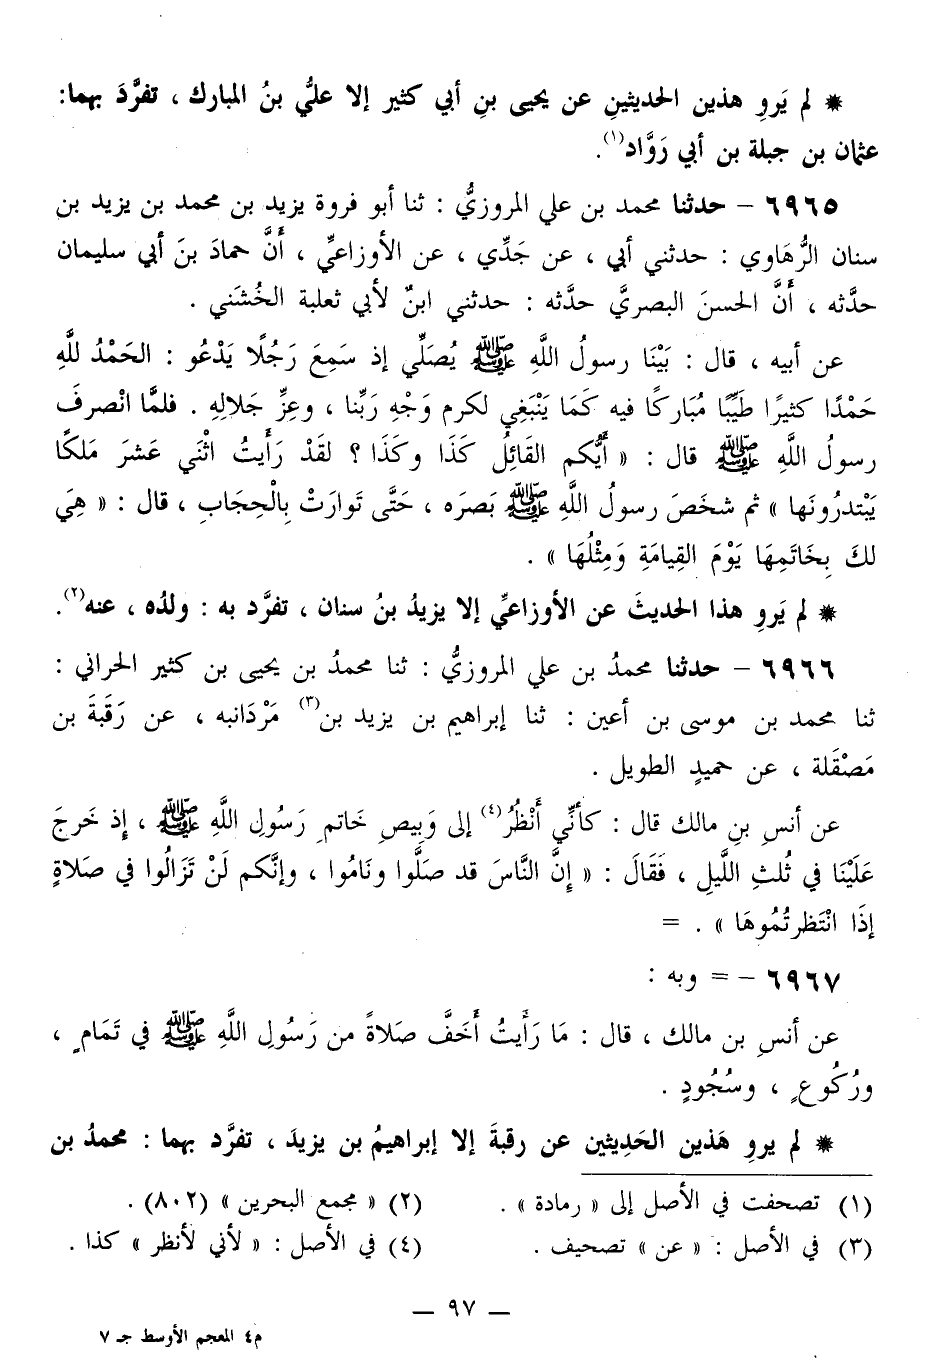 * لم يَروِ هذين الحديثينِ عن يحيى بنِ أبي كثير إلا عليُّ بنُ المبارك ، تفرَّدَ بهما:
عثمان بن جبلة بن أبي رَوَّاد(١).
٦٩٦٥ – حدثنا محمد بن علي المروزيُّ : ثنا أبو فروة يزيد بن محمد بن يزيد بن
سنان الرُّهَاوي : حدثني أبي ، عن جَدِّي ، عن الأوزاعيِّ ، أَنَّ حمادَ بنَ أبي سليمان
حدَّثه ، أَنَّ الحسنَ البصريَّ حدَّثه : حدثني ابنٌ لأبي ثعلبة الخُشَني .
عن أبيه ، قال : بَيْنَا رسولُ اللَّهِ ﷺ يُصَلِّي إذ سَمِعَ رَجُلًا يَدْعُو : الحَمْدُ للَّهِ
حَمْدًا كثيرًا طَيِّبًا مُبَاركًا فيه كَمَا يَنْبَغِي لكرم وَجْهِ رَبِّنا ، وعِزِّ جَلالِهِ . فلمَّا انْصرفَ
رسولُ اللَّهِ ﷺ قال : « أَيُّكم القَائِلُ كَذَا وكَذَا ؟ لقَدْ رَأَيتُ اثْنَي عَشرَ مَلكًا
يَبْتدرُونَها » ثم شخَصَ رسولُ اللَّهِ ﷺ بَصَره ، حَتَّى تَوارَتْ بِالْحِجَابِ ، قال : « هِيَ
لكَ بِخَاتَمِهَا يَوْمَ القِيامَةِ وَمِثْلُهَا » .
* لم يَروِ هذا الحديثَ عن الأوزاعيِّ إلا يزيدُ بنُ سنان ، تفرَّد به : ولدُه ، عنه(٢).
٦٩٦٦ – حدثنا محمدُ بن علي المروزيُّ : ثنا محمدُ بن يحيى بن كثير الحراني :
ثنا محمد بن موسى بن أعين : ثنا إبراهيم بن يزيد بن(٣) مَرْدَانبه ، عن رَقَبَةَ بن
مَصْقَلة ، عن حميدٍ الطويل .
عن أنسِ بنِ مالك قال : كأنِّي أَنْظُرُ(٤) إلى وَبِيصِ خَاتمِ رَسُولِ اللَّهِ ﷺ ، إِذ خَرجَ
عَلَيْنَا في ثُلثِ اللَّيلِ ، فَقَالَ : « إِنَّ النَّاسَ قد صَلَّوا ونَامُوا ، وإِنَّكم لَنْ تَزَالُوا في صَلاةٍ
إِذَا انْتَظرتُمُوهَا » . =
٦٩٦٧ – = وبه :
عن أنسِ بن مالك ، قال : مَا رَأَيتُ أَخَفَّ صَلاةً من رَسُولِ اللَّهِ ﷺ في تَمَامٍ ،
ورُكُوعٍ ، وسُجُودٍ .
* لم يروِ هَذين الحَدِيثين عن رقبةَ إلا إبراهيمُ بن يزيدَ ، تفرَّد بهما : محمدُ بن
(١) تصحفت في الأصل إلى « رمادة » .
(٢) « مجمع البحرين » (٨٠٢) .
(٣) في الأصل : « عن » تصحيف .
(٤) في الأصل : « لأني لأنظر » كذا .
— ٩٧ —
م٤ المعجم الأوسط جـ ٧